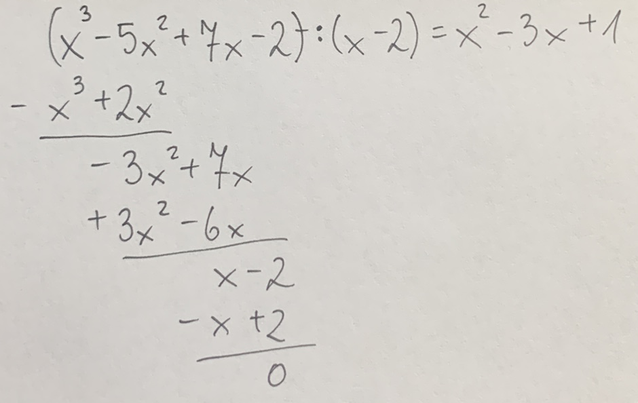 (x³ - 5x² + 7x - 2) : (x - 2) = x² - 3x + 1
- x³ + 2x²
- 3x² + 7x
+ 3x² - 6x
x - 2
- x + 2
0